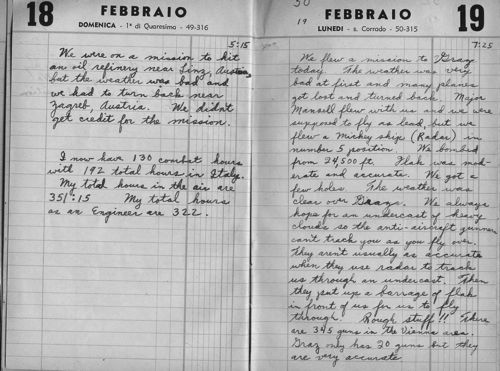 18 FEBBRAIO
DOMENICA - 1ª di Quaresima - 49-316
5:15
We were on a mission to hit
an oil refinery near Linz, Austria,
but the weather was bad and
we had to turn back near
Zagreb, Austria. We didn't
get credit for the mission.
I now have 130 combat hours
with 192 total hours in Italy.
My total hours in the air are
351:15 My total hours
as an Engineer are 322.
FEBBRAIO 19
19 LUNEDI - s. Corrado - 50-315
7:25
We flew a mission to Graz
today. The weather was very
bad at first and many planes
got lost and turned back. Major
Mansell flew with us and we were
supposed to fly as lead, but we
flew a Mickey ship (Radar) in
number 5 position. We bombed
from 24,500 ft. Flak was mod-
erate and accurate. We got a
few holes. The weather was
clear over Graz. We always
hope for an undercast of heavy
clouds so the anti-aircraft gunners
can't track you as you fly over.
They aren't usually as accurate
when they use radar to track
us through an undercast. Then
they put up a barrage of flak
in front of us for us to fly
through. Rough stuff!! There
are 345 guns in the Vienna area.
Graz only has 30 guns but they
are very accurate